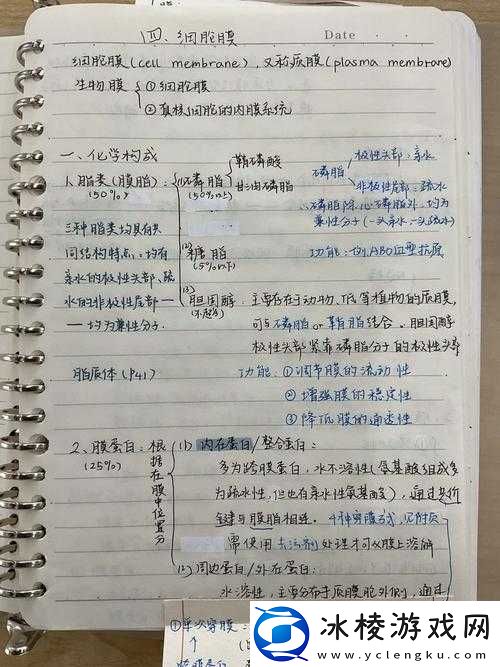 四、细胞膜 Date
细胞膜(cell membrane),又称质膜(plasma membrane)
生物膜 ①细胞膜
②真核细胞的内膜系统
一、化学构成
1.脂类(膜脂):
(50%)
(1)磷脂
(50%以上)
鞘磷脂
甘油磷脂
磷脂 极性头部:亲水
非极性尾部:疏水
磷脂除心磷脂外,均为
兼性分子(一头亲水,一头疏水)
三种脂类均具有共
同结构特点:均有
亲水的极性头部、疏
水的非极性尾部—
—均为兼性分子.
(2)糖脂
(5%以下)
功能:如ABO血型抗原
(3)胆固醇:主要存在于动物、低等植物的质膜,
可与磷脂or鞘脂结合。胆固醇
极性头部紧靠磷脂分子的极性头部
脂质体(P41)
功能:①调节膜的流动性
②增强膜的稳定性
③降低膜的通透性
2、膜蛋白:根据在膜中位置分
(25%)
(1)内在蛋白/整合蛋白:
多为跨膜蛋白,水不溶性(氨基酸组成多
为疏水性,但也有亲水性氨基酸),通过共价
键与膜脂相连。4种穿膜方式,见附页
需使用去污剂处理才可从膜上溶解
(2)周边蛋白/外在蛋白:
水溶性,主要分布于质膜胞外侧,通过
①单次穿膜:
冰棱游戏网
www.yclengku.com